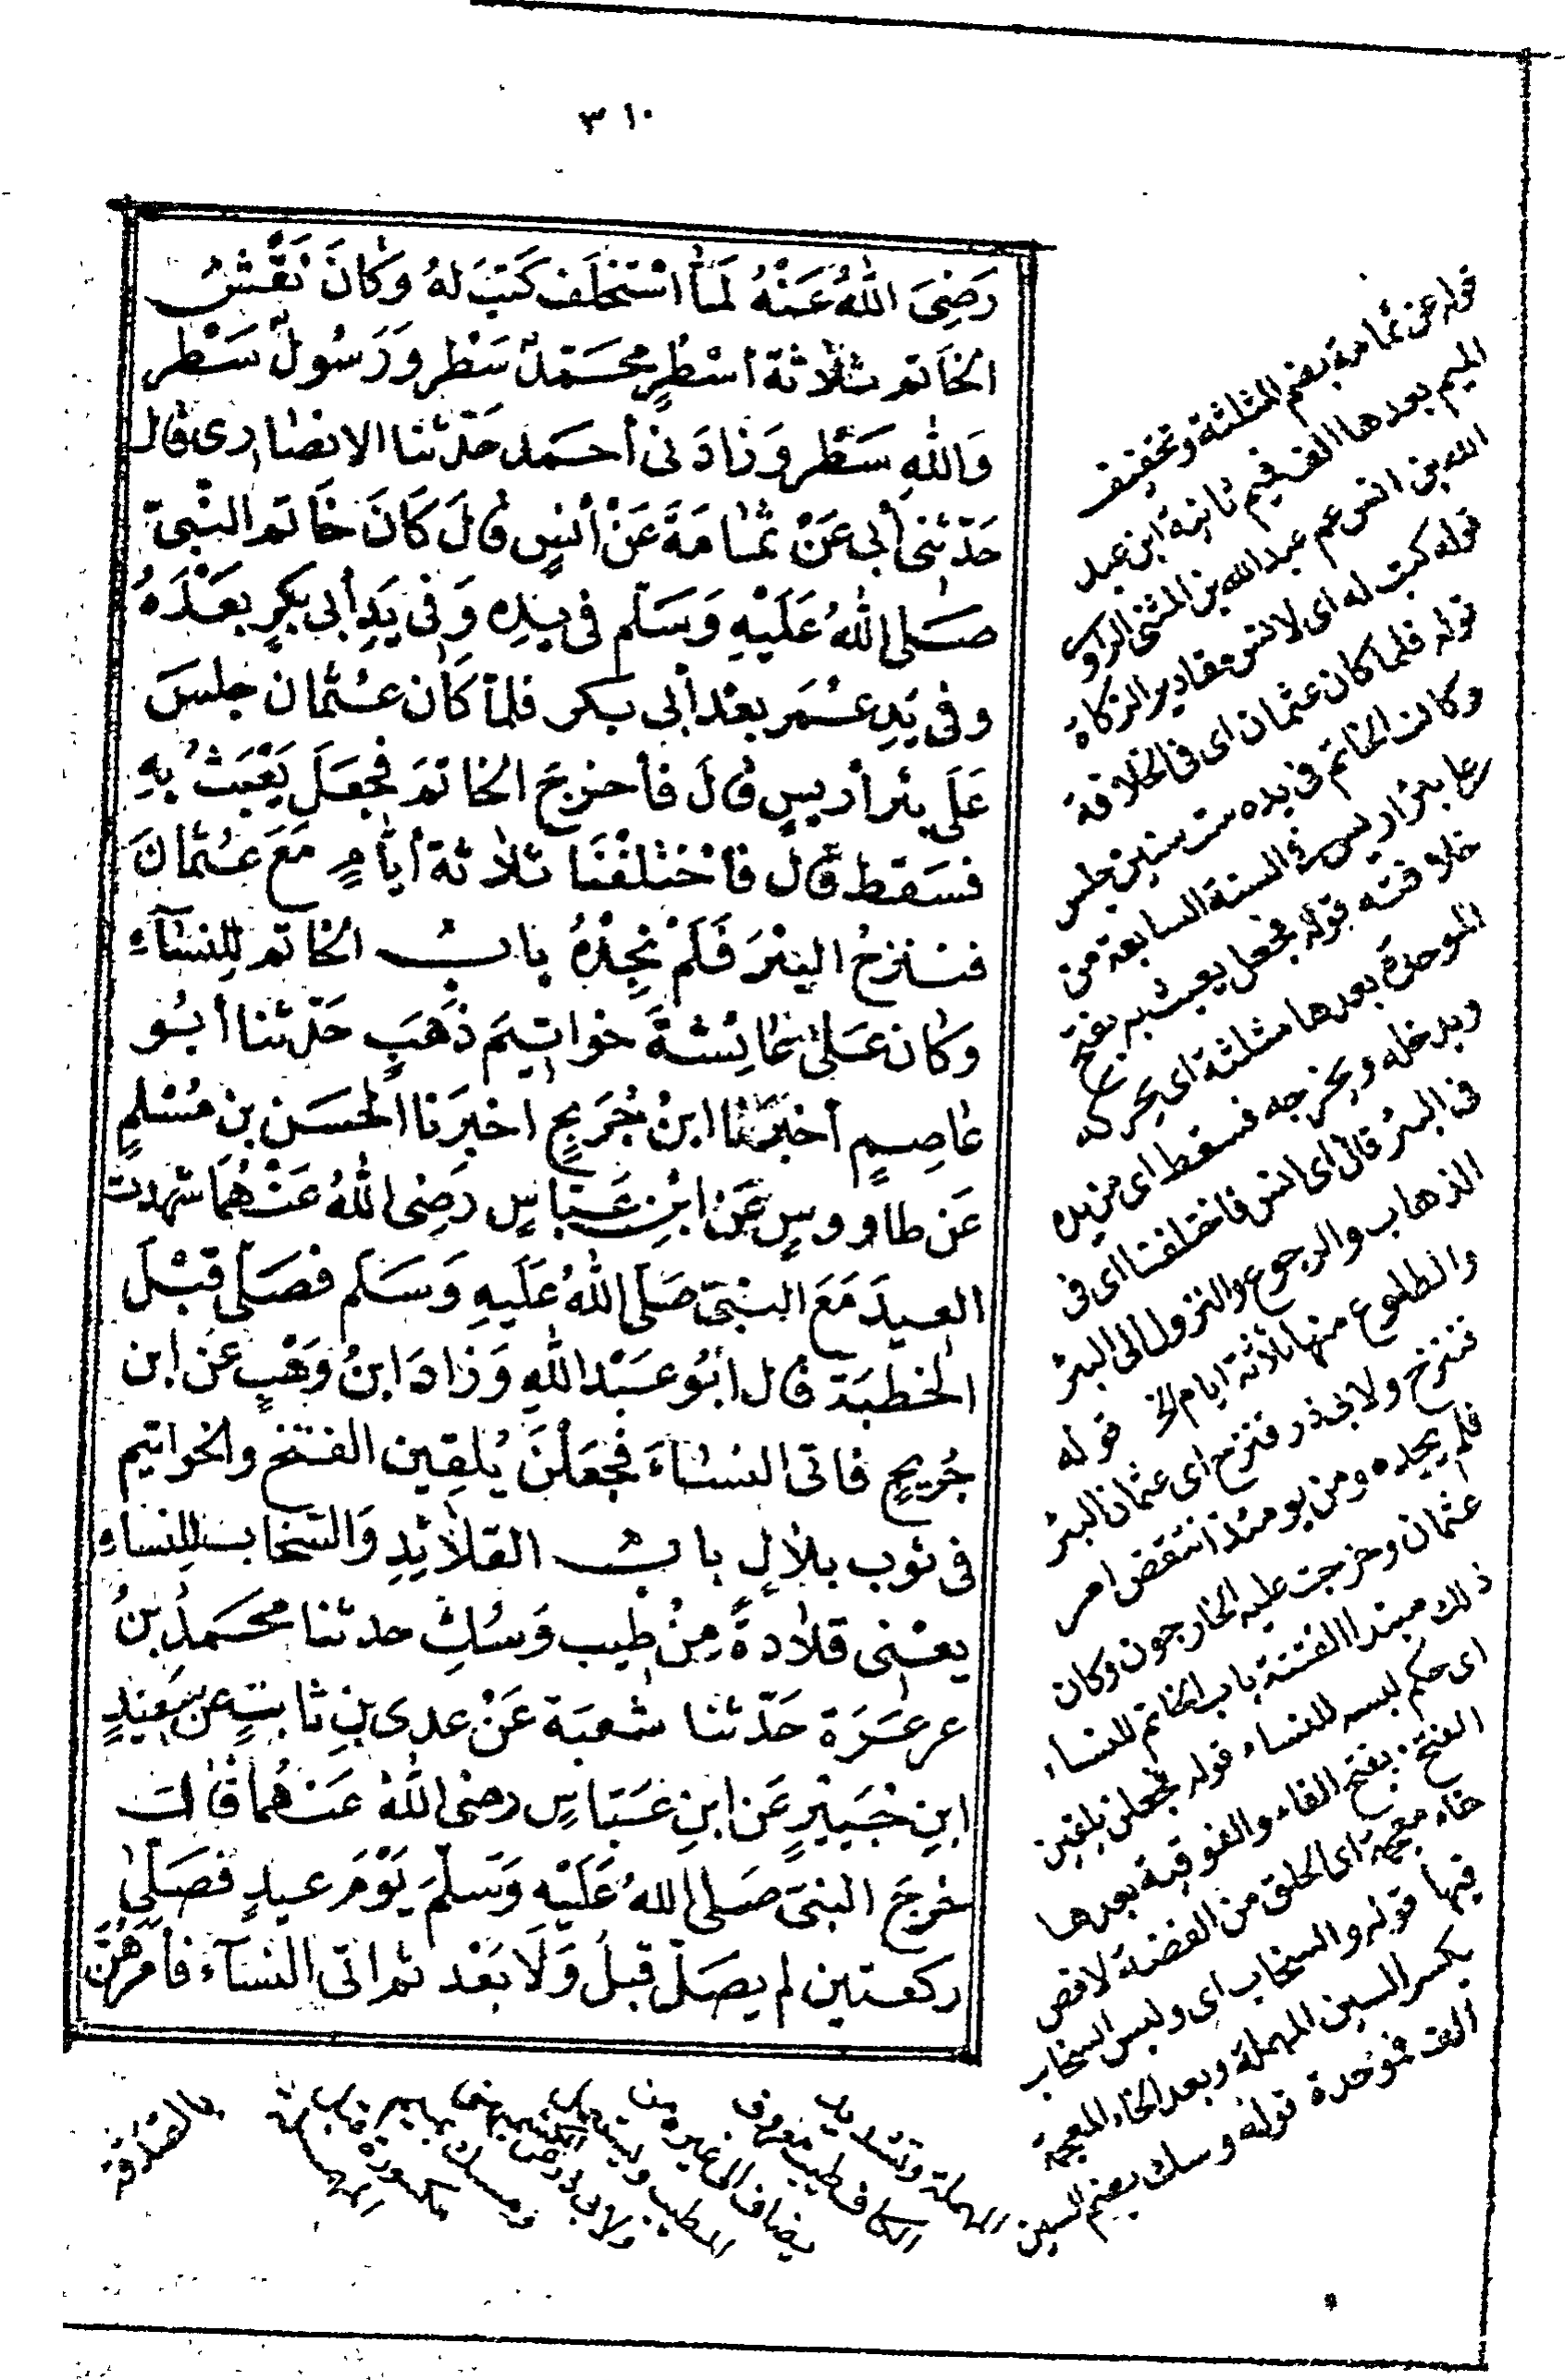 ٣١٠
رَضِيَ اللهُ عَنْهُ لَمَّا اسْتَخْلَفَ كَتَبَ لَهُ وَكَانَ نَقْشُ
الخَاتَم ثلاثة أسْطُرٍ محَمَّدٌ سَطْر وَرَسُولٌ سَطْر
وَاللهِ سَطْر وَزَادَنى أحمَد حَدّثنا الانصارى قال
حَدّثنى أبى عَنْ ثمَامَةَ عَنْ أنَسٍ قالَ كَانَ خَاتم النبىّ
صَلى اللهُ عَلَيْهِ وَسَلم فى يدِه وَفى يَدِ أبى بكرٍ بعَدَهُ
وفى يَدِ عُمَر بعْد أبى بكر فلمّا كَان عثمان جلسَ
عَلَى بئر أريسٍ قالَ فأخرجَ الخاتمَ فجعَلَ يَعْبَثُ بِهِ
فسَقط قالَ فاخْتلفْنَا ثلاثة أيّامٍ مَعَ عثمانَ
فننزحُ البئرَ فَلَمْ نجِدْهُ بابُ الخَاتم لِلنسَآءِ
وكان عَلى عَائِشةَ خواتيمَ ذَهَبٍ حَدّثنا أبُو
عَاصِمٍ أخبَرَنا ابنُ جُرَيجٍ اخبرَنا الحَسَن بنِ مُسْلمٍ
عَن طاووسٍ عَنْ ابْنِ عَبّاسٍ رَضِى اللهُ عَنْهُمَا شَهِدت
العيدَ مَعَ النبىّ صَلّى اللهُ عَلَيهِ وَسَلم فصَلّى قبْلَ
الخطبَة قال ابُو عَبْد اللهِ وَزادَ ابنُ وَهْبٍ عَن ابن
جُرَيجٍ فاتى النسَاءَ فجَعَلْنَ يُلقِين الفتَخَ والخواتيم
فى ثوب بلالٍ بابُ القلائِدِ وَالسّخاب للِنساءِ
يعنى قلادةً مِنْ طِيب وَسُكٍّ حدثنا محَمدُ بنُ
عرعَرَة حَدّثنا شعبَة عَنْ عدى بنِ ثابتٍ عن سَعِيدٍ
ابنِ جُبَيْرٍ عَن ابنِ عَبّاسٍ رضى اللهُ عَنهُما قالت
خرجَ النبىّ صَلى اللهُ عَلَيْهِ وَسَلمَ يَوْمَ عيدٍ فصَلّى
ركعتين لم يصَلّ قبلُ وَلَا بَعْد ثم اتى النسَآءَ فأمَرَهُنَّ
قوله عن ثمامة بضم المثلثة وتخفيف
الميم بعدها الف فميم ثانية ابن عبد
الله بن انس عم عبد الله بن المثنى الراوى
قوله كتب له اى لانس مقادير الزكاة
قوله فلما كان عثمان اى فى الخلافة
وكان الخاتم فى يده ست سنين جلس
على بئر اريس فى السنة السابعة من
خلافته قوله فجعل يعبث به بفتح
الموحدة بعدها مثلثة اى يحركه
ويدخله ويخرجه فسقط اى من يده
فى البئر قال اى انس فاختلفنا اى فى
الذهاب والرجوع والنزول الى البئر
والطلوع منها ثلاثة ايام الخ قوله
فننزح ولابى ذر فنزح اى عثمان البئر
فلم يجده ومن يومئذ انتقض امر
عثمان وخرجت عليه الخارجون وكان
ذلك مبتدا الفتنة باب الخاتم للنساء
اى حكم لبسه للنساء قوله فجعلن يلقين
الفتخ بفتح الفاء والفوقية بعدها
خاء معجمة اى الحلق من الفضة لا فص
فيها قوله والسخاب اى ولبس السخاب
بكسر السين المهملة وبعد الخاء المعجمة
الف فموحدة قوله وسك بضم السين
المهملة وتشديد
الكاف طيب معروف
يضاف الى غيره من
الطيب
بالصدقة